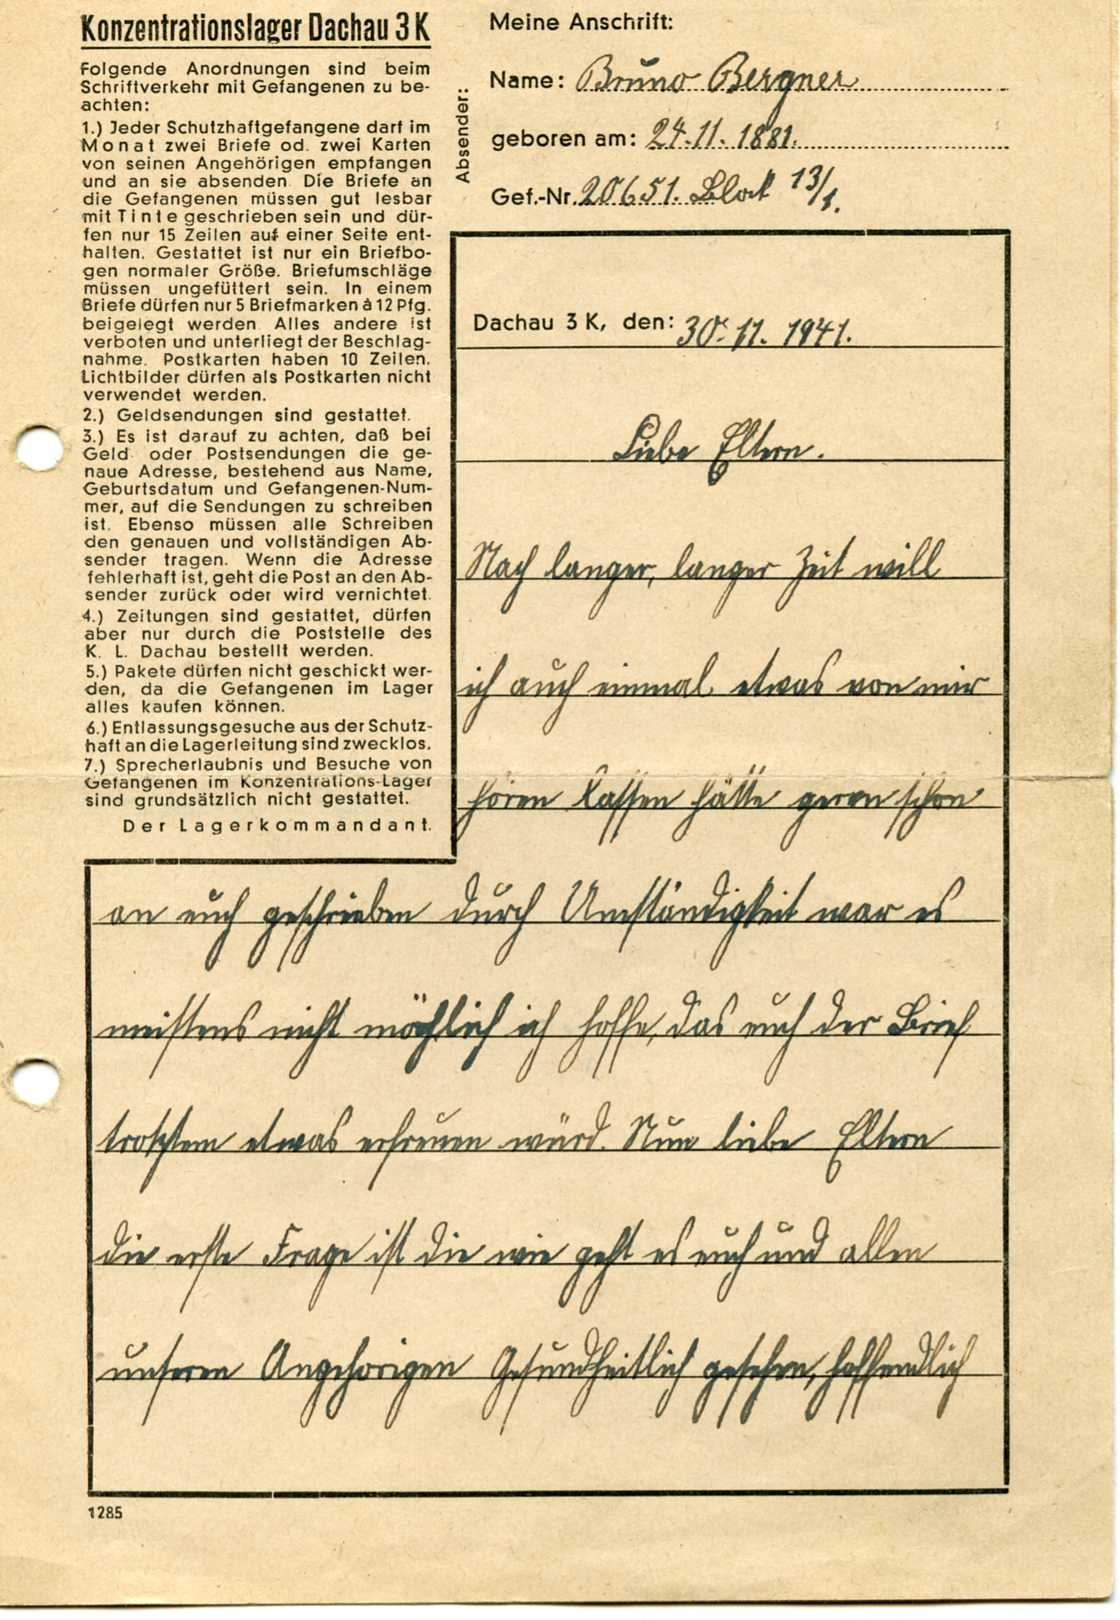 Konzentrationslager Dachau 3 K
Folgende Anordnungen sind beim
Schriftverkehr mit Gefangenen zu be-
achten:
1.) Jeder Schutzhaftgefangene darf im
Monat zwei Briefe od. zwei Karten
von seinen Angehörigen empfangen
und an sie absenden. Die Briefe an
die Gefangenen müssen gut lesbar
mit Tinte geschrieben sein und dür-
fen nur 15 Zeilen auf einer Seite ent-
halten. Gestattet ist nur ein Briefbo-
gen normaler Größe. Briefumschläge
müssen ungefüttert sein. In einem
Briefe dürfen nur 5 Briefmarken à 12 Pfg.
beigelegt werden. Alles andere ist
verboten und unterliegt der Beschlag-
nahme. Postkarten haben 10 Zeilen.
Lichtbilder dürfen als Postkarten nicht
verwendet werden.
2.) Geldsendungen sind gestattet.
3.) Es ist darauf zu achten, daß bei
Geld- oder Postsendungen die ge-
naue Adresse, bestehend aus Name,
Geburtsdatum und Gefangenen-Num-
mer, auf die Sendungen zu schreiben
ist. Ebenso müssen alle Schreiben
den genauen und vollständigen Ab-
sender tragen. Wenn die Adresse
fehlerhaft ist, geht die Post an den Ab-
sender zurück oder wird vernichtet.
4.) Zeitungen sind gestattet, dürfen
aber nur durch die Poststelle des
K. L. Dachau bestellt werden.
5.) Pakete dürfen nicht geschickt wer-
den, da die Gefangenen im Lager
alles kaufen können.
6.) Entlassungsgesuche aus der Schutz-
haft an die Lagerleitung sind zwecklos.
7.) Sprecherlaubnis und Besuche von
Gefangenen im Konzentrations-Lager
sind grundsätzlich nicht gestattet.
Der Lagerkommandant.
Absender:
Meine Anschrift:
Name: Bruno Bergner
geboren am: 24.11.1881.
Gef.-Nr. 20651. Block 13/1.
Dachau 3 K, den: 30.11.1941.
Liebe Eltern.
Nach langer, langer Zeit will
ich auch einmal etwas von mir
hören lassen hätte geren schon
an euch geschrieben durch Umständigkeit war es
meistens nicht möchlich ich hoffe, das euch der Brief
trotztem etwas erfreuen würd. Nun liebe Eltern
die erste Frage ist die wie geht es euch und allen
unseren Angehörigen Gesundheitlich gesehen, hoffendlich
1285